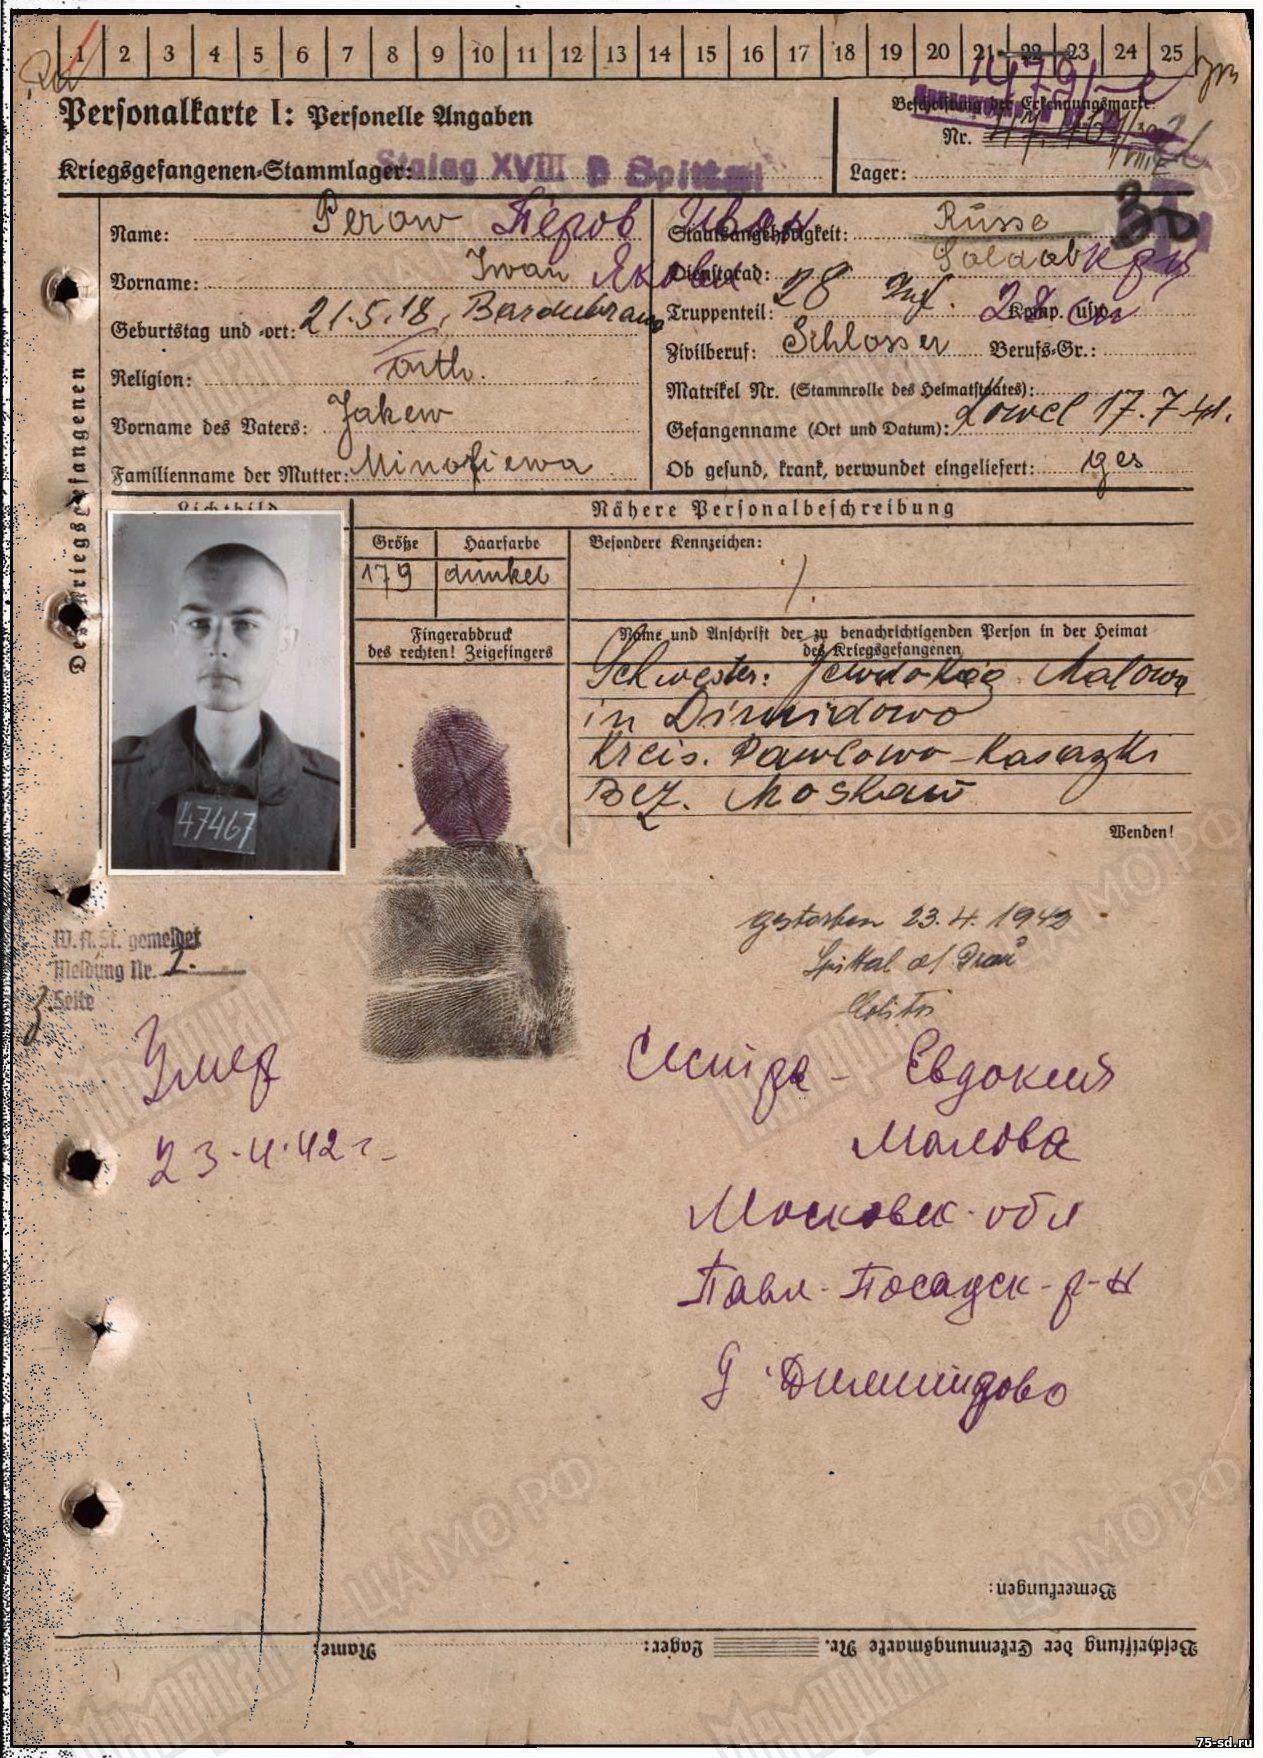 1 2 3 4 5 6 7 8 9 10 11 12 13 14 15 16 17 18 19 20 21 22 23 24 25
Personalkarte I: Personelle Angaben
Beschriftung der Erkennungsmarke:
Nr.
Kriegsgefangenen-Stammlager: Stalag XVIII B Spittal
Lager:
Des Kriegsgefangenen
Name: Perow Перов Иван
Staatsangehörigkeit: Russe
Vorname: Iwan Яковл
Dienstgrad: Soldat
Geburtstag und -ort: 21.5.18,
Truppenteil: 28 Inf. Komp. usw.:
Religion: orth.
Zivilberuf: Schlosser Berufs-Gr.:
Matrikel Nr. (Stammrolle des Heimatstaates):
Vorname des Vaters: Jakew
Gefangenname (Ort und Datum): Kowel 17.7.41.
Familienname der Mutter:
Ob gesund, krank, verwundet eingeliefert: ges
Lichtbild
Nähere Personalbeschreibung
Größe Haarfarbe
Besondere Kennzeichen:
179 dunkel
Fingerabdruck
des rechten! Zeigefingers
Name und Anschrift der zu benachrichtigenden Person in der Heimat
des Kriegsgefangenen
Schwester: Malowa
in Dimidowo
Kreis. Pawlowo-
Bez. Moskau
Wenden!
47467
gestorben 23.4.1942
Spittal a/ Drau
Colitis
W.A.St. gemeldet
Meldung Nr. 2.
Seite
Умер
23.4.42 г.
Сестра - Евдокия
Малова
Московск. обл
Павл-Посадск-р-н
д.
Bemerkungen:
Beschriftung der Erkennungsmarke Nr. Lager: Name:
ЦАМО РФ
75-sd.ru